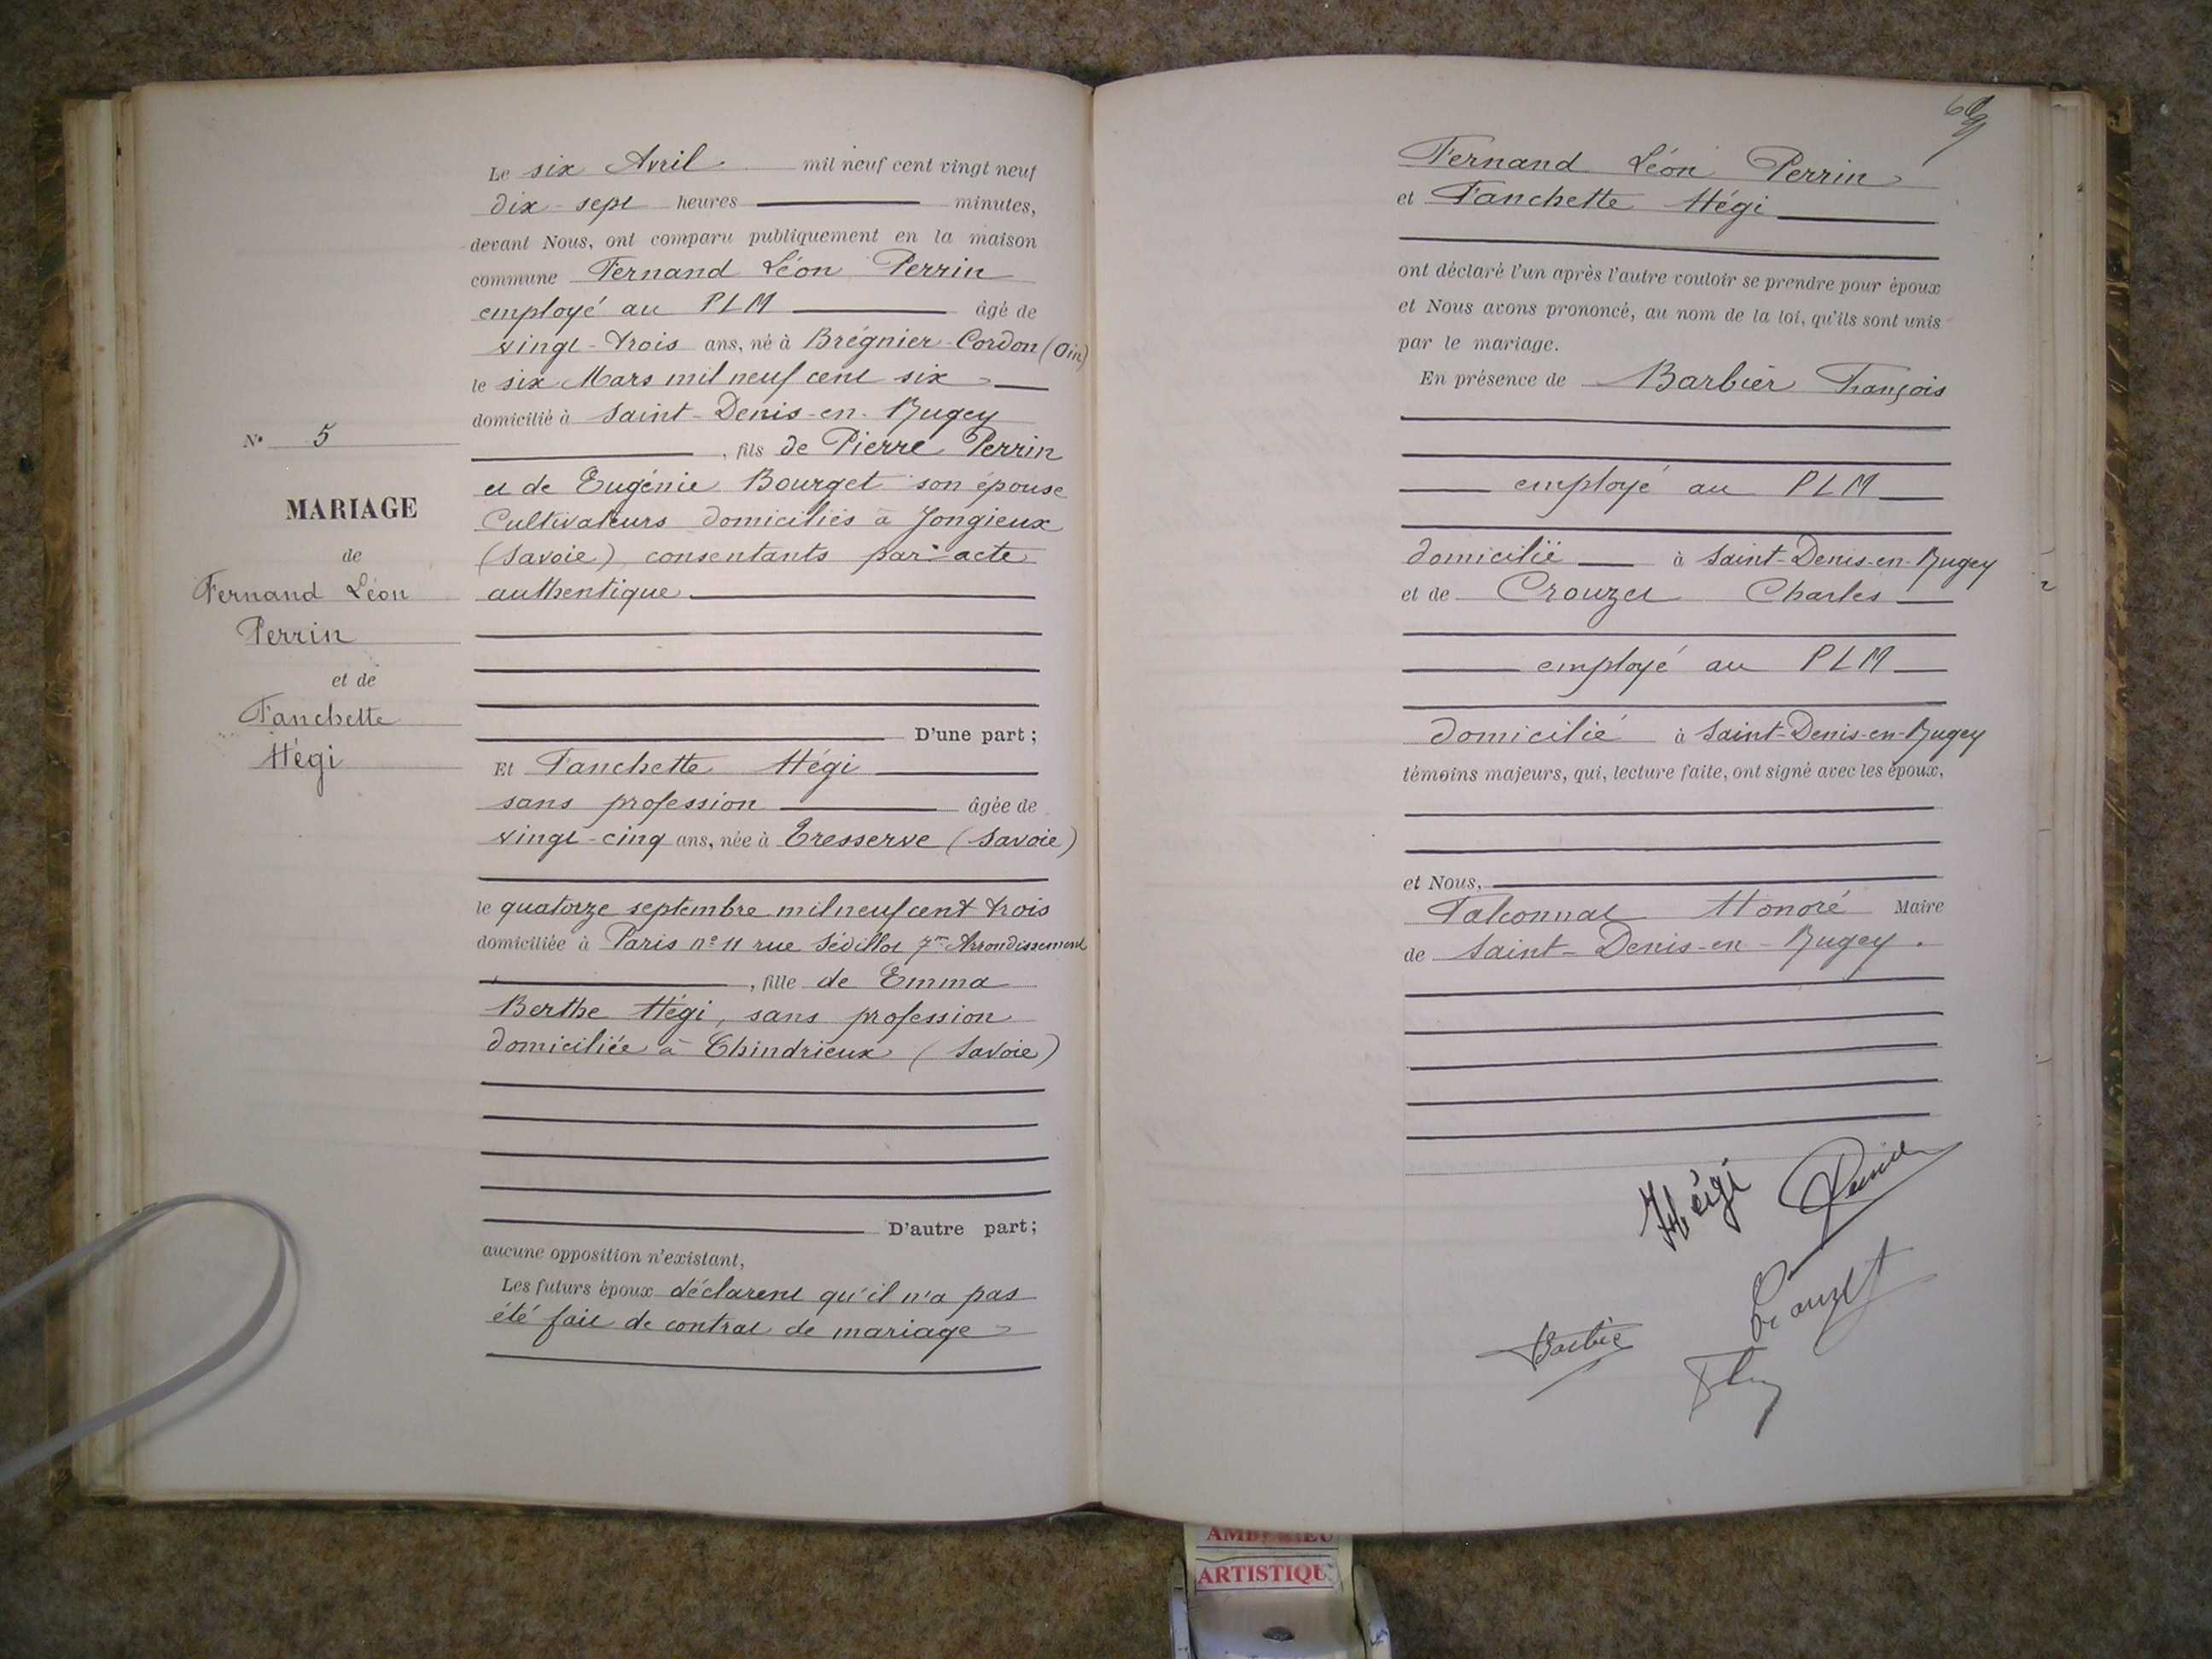 Le six Avril mil neuf cent vingt neuf
dix-sept heures minutes,
devant Nous, ont comparu publiquement en la maison
commune Fernand Léon Perrin
employé au PLM âgé de
vingt-trois ans, né à Brégnier-Cordon (Ain)
le six Mars mil neuf cent six
domicilié à Saint-Denis-en-Bugey
, fils de Pierre Perrin
et de Eugénie Bourget son épouse
Cultivateurs domiciliés à Jongieux
(Savoie) consentants par acte
authentique
D'une part ;
Et Fanchette Hégi
sans profession âgée de
vingt-cinq ans, née à Tresserve (Savoie)
le quatorze septembre mil neuf cent trois
domiciliée à Paris n° 11 rue Sédillot 7me Arrondissement
, fille de Emma
Berthe Hégi, sans profession
domiciliée à Chindrieux (Savoie)
D'autre part ;
aucune opposition n'existant,
Les futurs époux déclarent qu'il n'a pas
été fait de contrat de mariage
N° 5
MARIAGE
de
Fernand Léon
Perrin
et de
Fanchette
Hégi
Fernand Léon Perrin
et Fanchette Hégi
ont déclaré l'un après l'autre vouloir se prendre pour époux
et Nous avons prononcé, au nom de la loi, qu'ils sont unis
par le mariage.
En présence de Barbier François
employé au PLM
domicilié à Saint-Denis-en-Bugey
et de Crouzet Charles
employé au PLM
domicilié à Saint-Denis-en-Bugey
témoins majeurs, qui, lecture faite, ont signé avec les époux,
et Nous,
Falconnat Honoré Maire
de Saint-Denis-en-Bugey.
Hégi
Crouzet
Barbier
ARTISTIQU